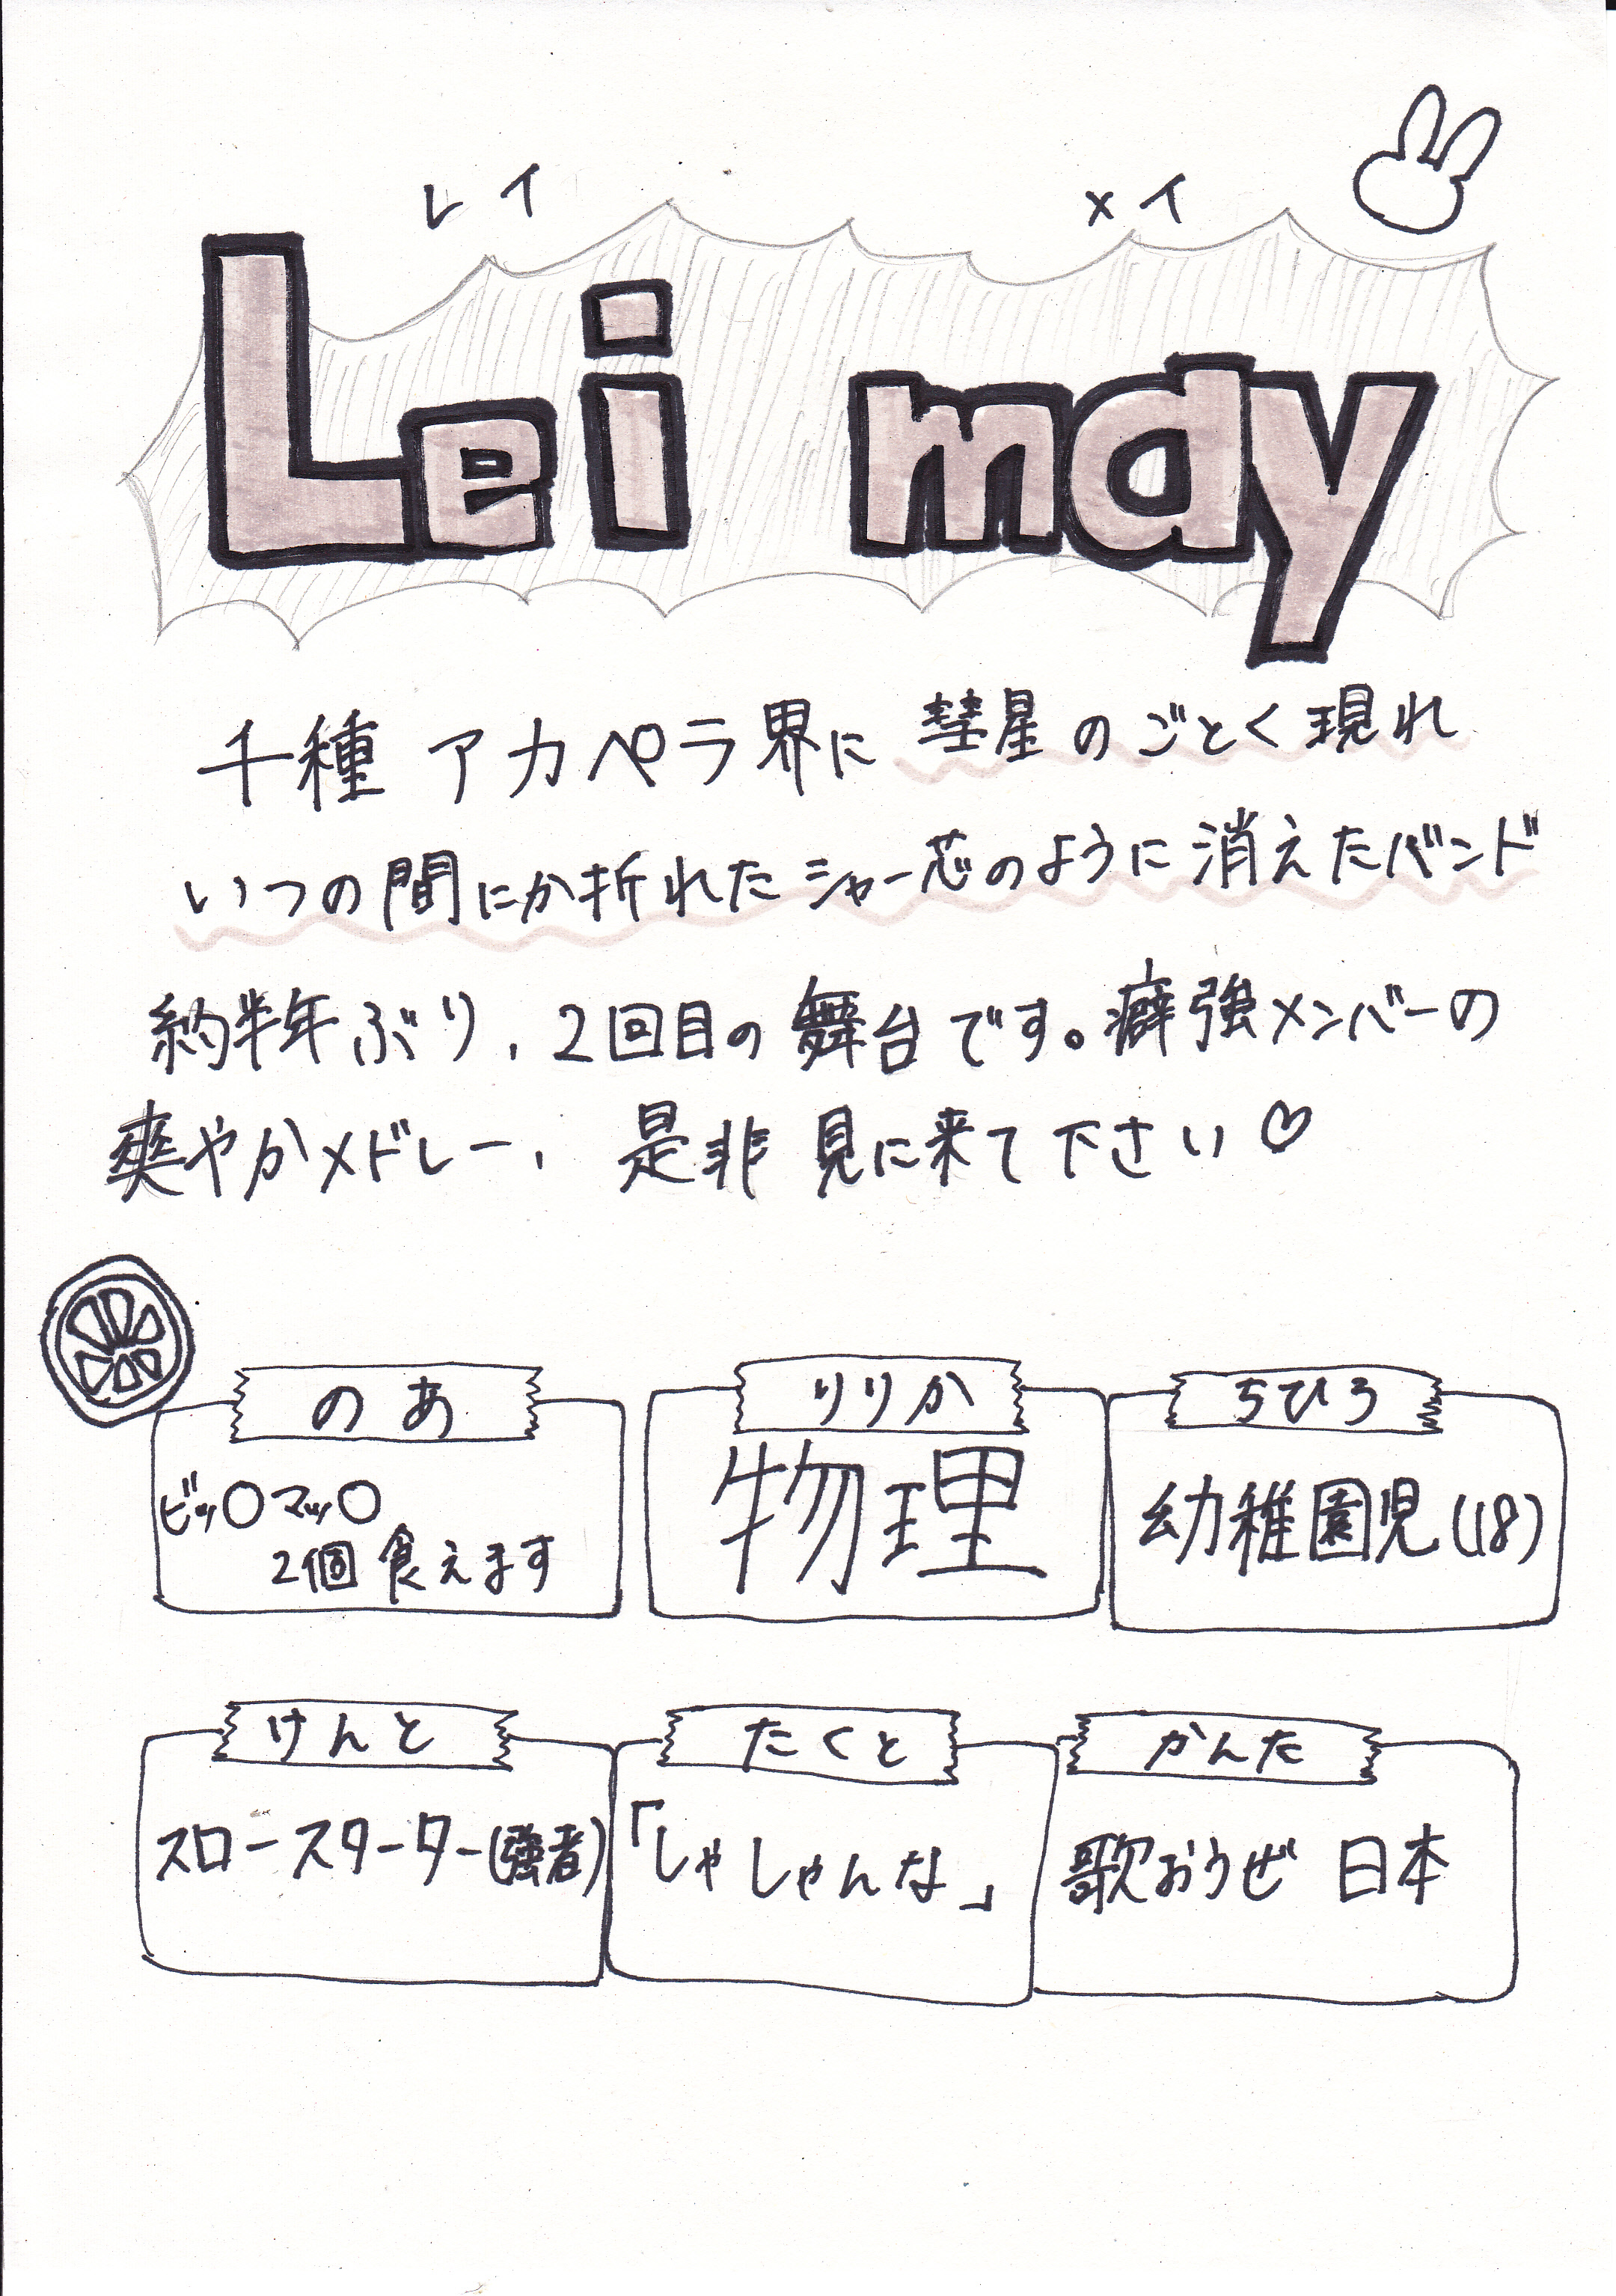 レイ メイ
Lei may
千種 アカペラ界に 彗星のごとく現れ
いつの間にか折れたシャー芯のように消えたバンド
約半年ぶり、2回目の舞台です。癖強メンバーの
爽やかメドレー、是非 見に来て下さい♡
のあ
ビッ〇マッ〇
2個食えます
りりか
物理
ちひろ
幼稚園児(18)
けんと
スロースターター(強者)
たくと
「しゃしゃんな」
かんた
歌おうぜ 日本